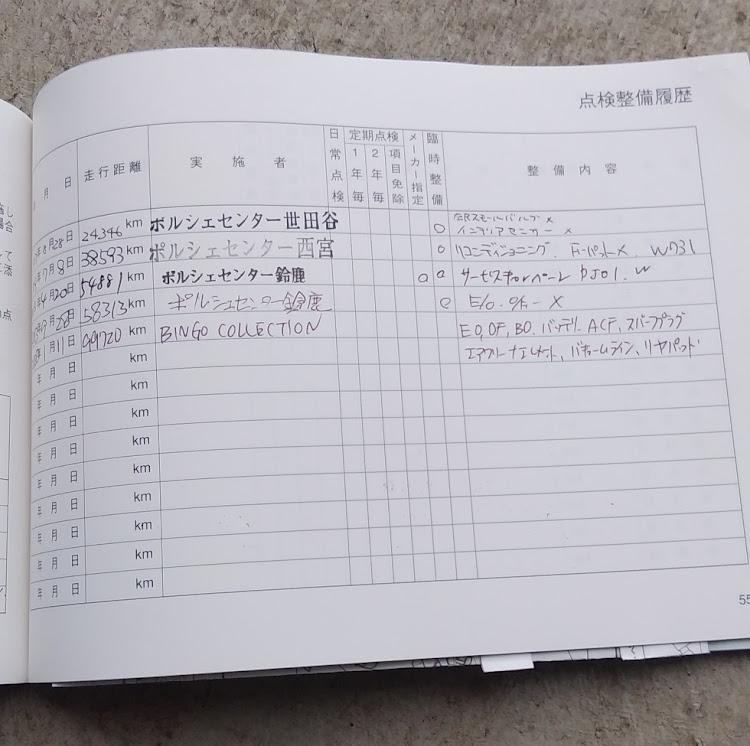 点検整備履歴
月 日 走行距離 実施者 日常点検 定期点検 1年毎 2年毎 項目免除 メーカー指定 臨時整備 整備内容
8月28日 24,346 km ポルシェセンター世田谷 ○ スモールバルブ ×
インテリアセンサー ×
7月8日 38593 km ポルシェセンター西宮 ○ リコンディショニング. F-パット×. W731
4月20日 54881 km ポルシェセンター鈴鹿 ○ ○ サービスキャンペーン W
28日 58313 km ポルシェセンター鈴鹿 ○ E/o. ×
1月11日 99720 km BINGO COLLECTION EO, OF, BO, バッテリ, ACF, スパープラグ
年 月 日 km エアクリーナエレメント、
年 月 日 km
年 月 日 km
年 月 日 km
年 月 日 km
年 月 日 km
年 月 日 km
年 月 日 km
年 月 日 km
55